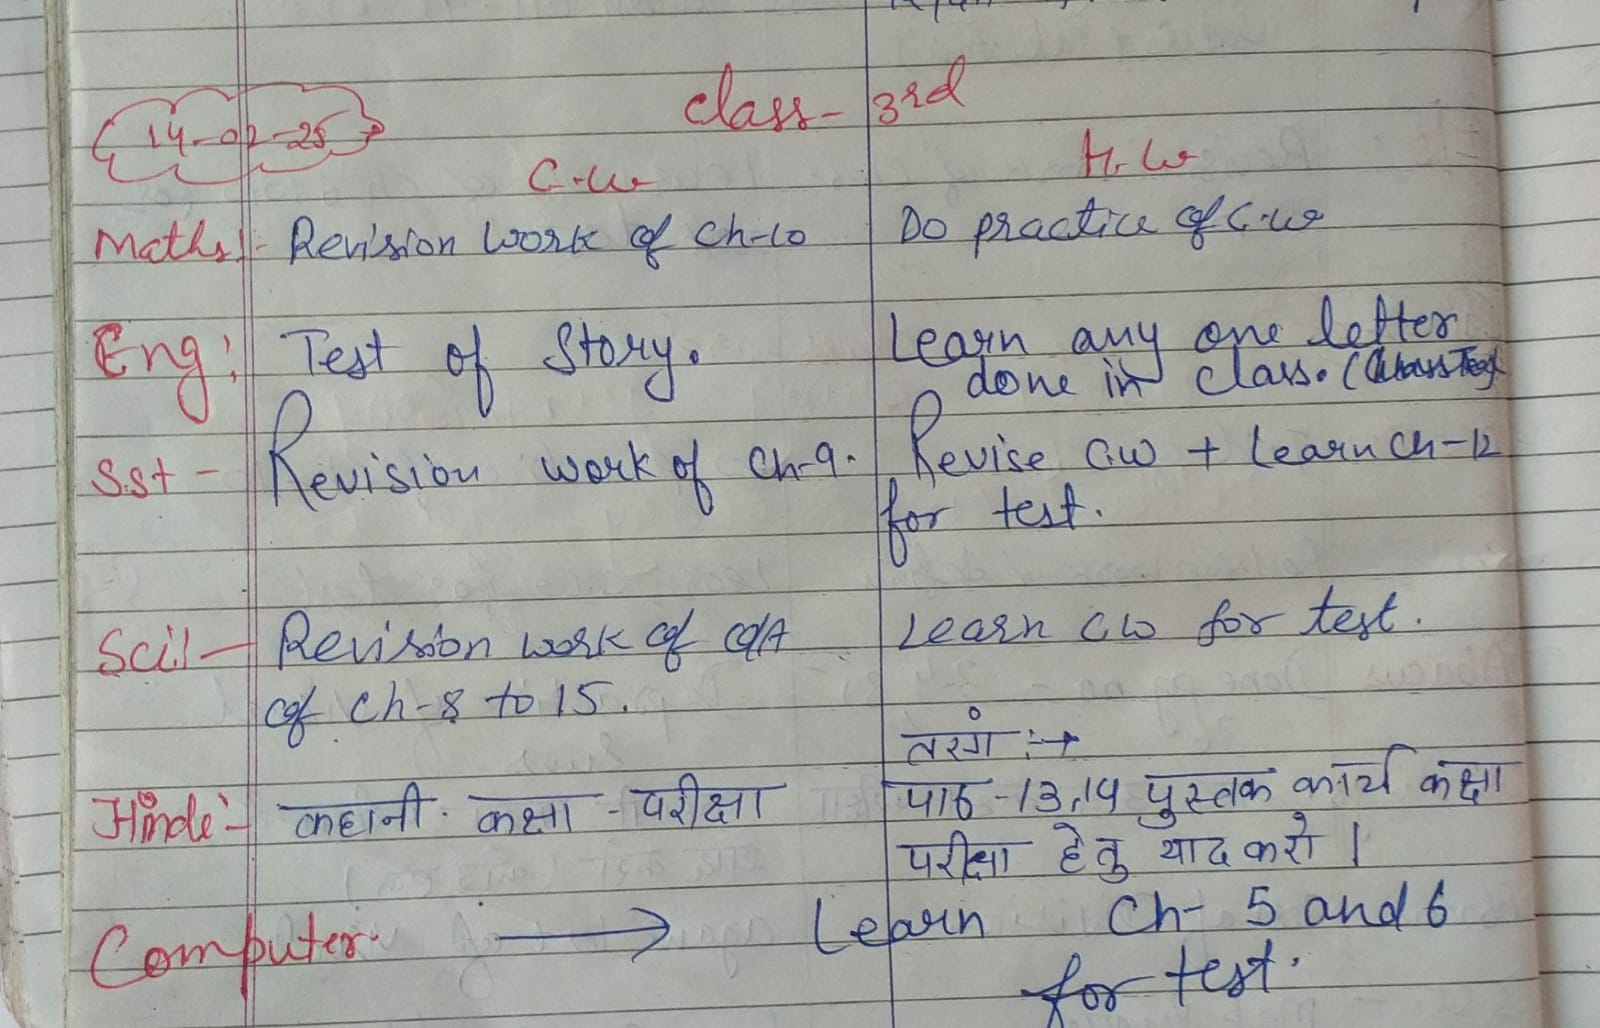 class - 3rd
14-02-25
C.w H.w
Maths:- Revision work of Ch-10 Do practice of C.w
Eng: Test of Story. Learn any one letter
done in class. (Class Test)
S.st - Revision work of Ch-9. Revise C.W + Learn Ch-12
for test.
Sci:- Revision work of Q/A Learn C.W for test.
of Ch-8 to 15.
तरंग :→
Hindi:- कहानी. कक्षा - परीक्षा पाठ -13,14 पुस्तक कार्य कक्षा
परीक्षा हेतु याद करो।
Computer. → Learn Ch- 5 and 6
for test.